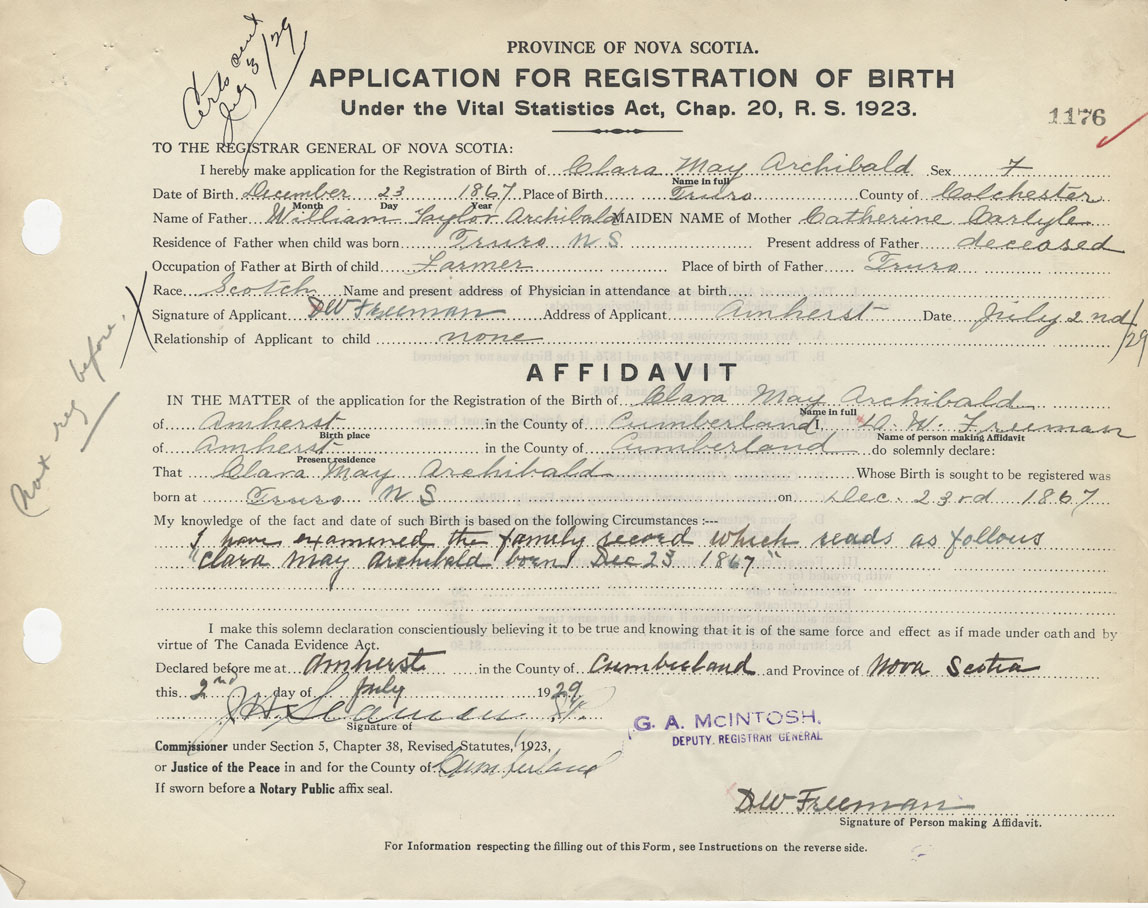 Certs sent
July 3/29
PROVINCE OF NOVA SCOTIA.
APPLICATION FOR REGISTRATION OF BIRTH
Under the Vital Statistics Act, Chap. 20, R. S. 1923.
1176
TO THE REGISTRAR GENERAL OF NOVA SCOTIA:
I hereby make application for the Registration of Birth of Clara May Archibald Sex F
Name in full
Date of Birth December 23 1867 Place of Birth Truro County of Colchester
Month Day Year
Name of Father William Taylor Archibald MAIDEN NAME of Mother Catherine Carlyle
Residence of Father when child was born Truro N S Present address of Father deceased
Occupation of Father at Birth of child Farmer Place of birth of Father Truro
Race Scotch Name and present address of Physician in attendance at birth
Signature of Applicant D W Freeman Address of Applicant Amherst Date July 2nd/29
Relationship of Applicant to child none
Not reg before. X
AFFIDAVIT
IN THE MATTER of the application for the Registration of the Birth of Clara May Archibald
Name in full
of Amherst in the County of Cumberland I, D. W. Freeman
Birth place Name of person making Affidavit
of Amherst in the County of Cumberland do solemnly declare:
Present residence
That Clara May Archibald Whose Birth is sought to be registered was
born at Truro N S on Dec. 23rd 1867
My knowledge of the fact and date of such Birth is based on the following Circumstances :---
I have examined the family record which reads as follows
"Clara May Archibald born Dec 23 1867"
I make this solemn declaration conscientiously believing it to be true and knowing that it is of the same force and effect as if made under oath and by
virtue of The Canada Evidence Act.
Declared before me at Amherst in the County of Cumberland and Province of Nova Scotia
this 2nd day of July 1929
J H Seaman J.P.
Signature of
G. A. McINTOSH,
DEPUTY. REGISTRAR GENERAL
Commissioner under Section 5, Chapter 38, Revised Statutes, 1923,
or Justice of the Peace in and for the County of Cumberland
If sworn before a Notary Public affix seal.
D W Freeman
Signature of Person making Affidavit.
For Information respecting the filling out of this Form, see Instructions on the reverse side.